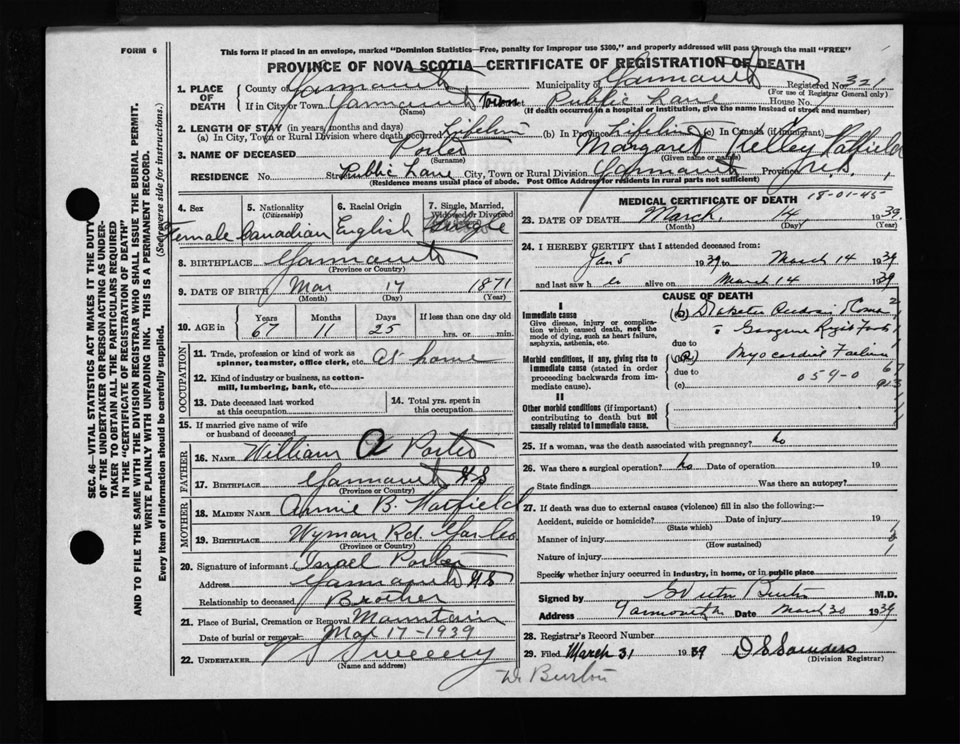 FORM 6
This form if placed in an envelope, marked "Dominion Statistics—Free, penalty for improper use $300," and properly addressed will pass through the mail "FREE"
PROVINCE OF NOVA SCOTIA—CERTIFICATE OF REGISTRATION OF DEATH
1. PLACE OF DEATH
County of Yarmouth Municipality of Yarmouth Registered No. 321
(For use of Registrar General only)
If in City or Town Yarmouth Town Street Public Lane House No.
(Name) (If death occurred in a hospital or institution, give the name instead of street and number)
2. LENGTH OF STAY (in years, months and days)
(a) In City, Town or Rural Division where death occurred Lifetime (b) In Province Lifetime (c) In Canada (if immigrant)
3. NAME OF DECEASED Porter Margaret Kelley Hatfield
(Surname) (Given name or names)
RESIDENCE No. Street Public Lane City, Town or Rural Division Yarmouth Province N.S.
(Residence means usual place of abode. Post Office Address for residents in rural parts not sufficient)
4. Sex
Female
5. Nationality (Citizenship)
Canadian
6. Racial Origin
English
7. Single, Married, Widowed or Divorced
Single
8. BIRTHPLACE Yarmouth
(Province or Country)
9. DATE OF BIRTH Mar 17 1871
(Month) (Day) (Year)
10. AGE in Years Months Days If less than one day old
67 11 25 hrs. or min.
OCCUPATION
11. Trade, profession or kind of work as spinner, teamster, office clerk, etc. At home
12. Kind of industry or business, as cotton-mill, lumbering, bank, etc.
13. Date deceased last worked at this occupation
14. Total yrs. spent in this occupation
15. If married give name of wife or husband of deceased
FATHER
16. NAME William A Porter
17. BIRTHPLACE Yarmouth N S
(Province or Country)
MOTHER
18. MAIDEN NAME Annie B. Hatfield
19. BIRTHPLACE Wyman Rd.
(Province or Country)
20. Signature of informant Israel Porter
Address Yarmouth N S
Relationship to deceased Brother
21. Place of Burial, Cremation or Removal Mountain
Date of burial or removal Mar 17-1939
22. UNDERTAKER V S Sweeny
(Name and address)
W. Burton
MEDICAL CERTIFICATE OF DEATH
18-01-45
23. DATE OF DEATH March, 14, 1939
(Month) (Day) (Year)
24. I HEREBY CERTIFY that I attended deceased from:
Jan 5 1939 to March 14 1939
and last saw h er alive on March 14 1939
CAUSE OF DEATH
I
Immediate cause
Give disease, injury or complication which caused death, not the mode of dying, such as heart failure, asphyxia, asthenia, etc.
Morbid conditions, if any, giving rise to immediate cause (stated in order proceeding backwards from immediate cause).
II
Other morbid conditions (if important) contributing to death but not causally related to immediate cause.
(a) Diabetes Coma
Gangrene Right Foot
due to
(b) Myocardial Failure
due to
(c) 059-0
25. If a woman, was the death associated with pregnancy? No
26. Was there a surgical operation? No Date of operation 19
State findings Was there an autopsy?
27. If death was due to external causes (violence) fill in also the following:—
Accident, suicide or homicide? Date of injury 19
Manner of injury
(How sustained)
Nature of injury
Specify whether injury occurred in industry, in home, or in public place
Signed by Burton M.D.
Address Yarmouth Date March 30 1939
28. Registrar's Record Number
29. Filed March 31 1939 D S Saunders
(Division Registrar)
SEC. 46—VITAL STATISTICS ACT MAKES IT THE DUTY OF THE UNDERTAKER OR PERSON ACTING AS UNDERTAKER TO OBTAIN ALL THE PARTICULARS REQUIRED IN THE "CERTIFICATE OF REGISTRATION OF DEATH" AND TO FILE THE SAME WITH THE DIVISION REGISTRAR WHO SHALL ISSUE THE BURIAL PERMIT.
WRITE PLAINLY WITH UNFADING INK. THIS IS A PERMANENT RECORD.
Every item of information should be carefully supplied. (See reverse side for instructions.)